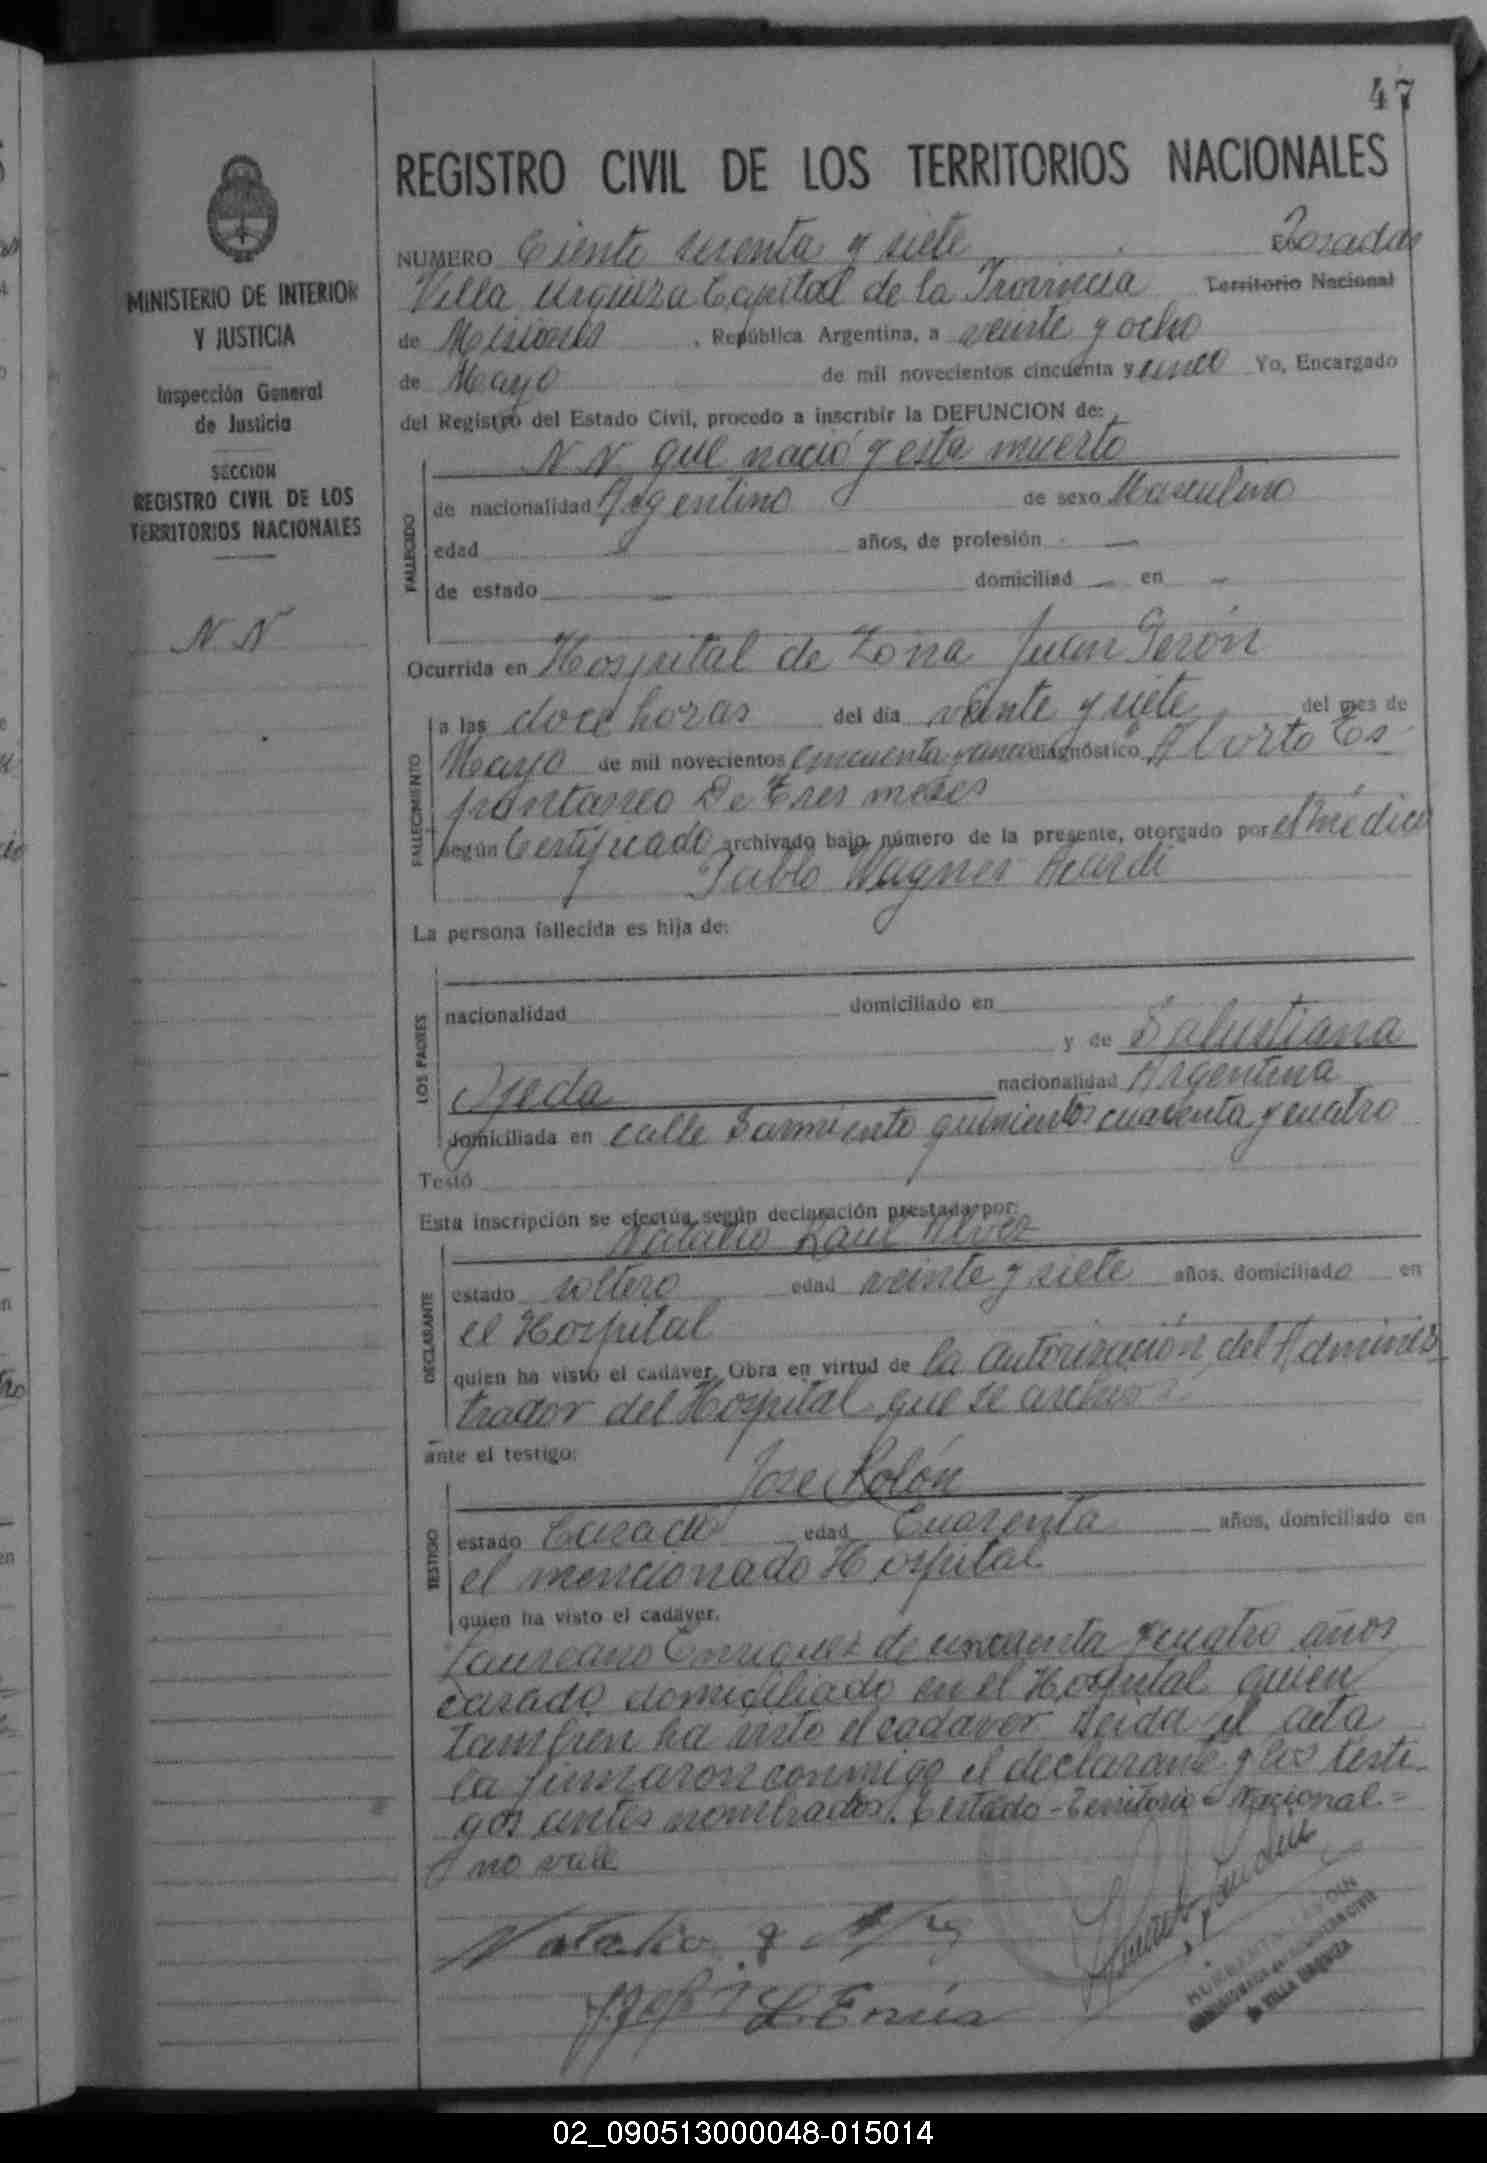 47
REGISTRO CIVIL DE LOS TERRITORIOS NACIONALES
MINISTERIO DE INTERIOR
Y JUSTICIA
Inspección General
de Justicia
SECCION
REGISTRO CIVIL DE LOS
TERRITORIOS NACIONALES
N. N
NUMERO Ciento sesenta y siete Posadas
Villa Urquiza Capital de la Provincia Territorio Nacional
de Misiones, República Argentina, a veinte y ocho
de Mayo de mil novecientos cincuenta y cinco Yo, Encargado
del Registro del Estado Civil, procedo a inscribir la DEFUNCION de:
N N que nació y esta muerto
FALLECIDO
de nacionalidad Argentino de sexo Masculino
edad — años, de profesión —
de estado — domiciliad — en —
Ocurrida en Hospital de Zona Juan Perón
FALLECIMIENTO
a las doce horas del día veinte y siete del mes de
Mayo de mil novecientos cincuenta y cinco diagnóstico Aborto Es
pontaneo De Tres meses
según Certificado archivado bajo número de la presente, otorgado por el médico
Pablo Wagner
La persona fallecida es hija de:
LOS PADRES
nacionalidad domiciliado en
y de Salustiana
Ojeda nacionalidad Argentina
domiciliada en calle Sarmiento quinientos cuarenta y cuatro
Testó
Esta inscripción se efectúa según declaración prestada por:
Natalio Raul Alvez
DECLARANTE
estado soltero edad veinte y siete años, domiciliado en
el Hospital
quien ha visto el cadáver. Obra en virtud de la autorización del Adminis
trador del Hospital que se archiva
ante el testigo:
Jose Rolón
TESTIGO
estado Casado edad Cuarenta años, domiciliado en
el mencionado Hospital
quien ha visto el cadáver.
Laureano Enriquez de cincuenta y cuatro años
casado domiciliado en el Hospital quien
tambien ha visto el cadaver Leida el acta
la firmaron conmigo el declarante y los testi
gos antes nombrados. Testado - Territorio - Nacional =
no vale
Natalio
L. Enriz
VILLA URQUIZA
02_090513000048-015014